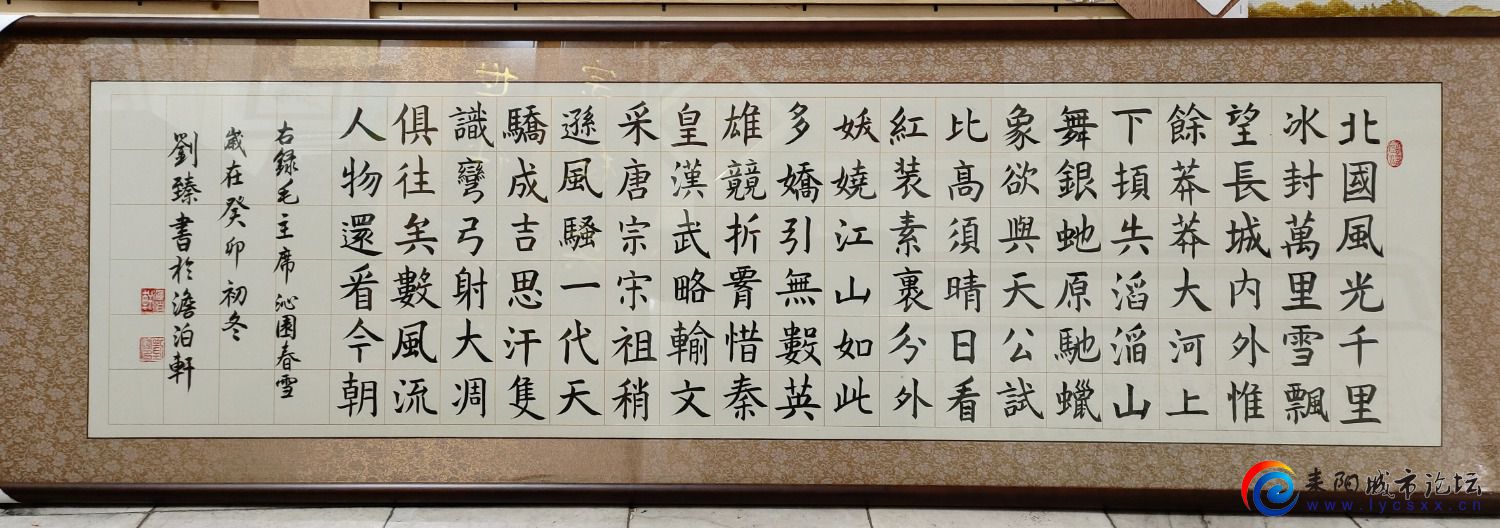 北國風光千里
冰封萬里雪飄
望長城内外惟
餘莽莽大河上
下頓失滔滔山
舞銀虵原馳蠟
象欲與天公試
比髙須晴日看
紅裝素裹分外
妖嬈江山如此
多嬌引無數英
雄競折惜秦
皇漢武略輸文
采唐宗宋祖稍
遜風騷一代天
驕成吉思汗隻
識彎弓射大凋
俱往矣數風流
人物還看今朝
右録毛主席沁園春雪
歲在癸卯初冬
劉臻書於澹泊軒
耒阳城市论坛
www.lycsxx.cn